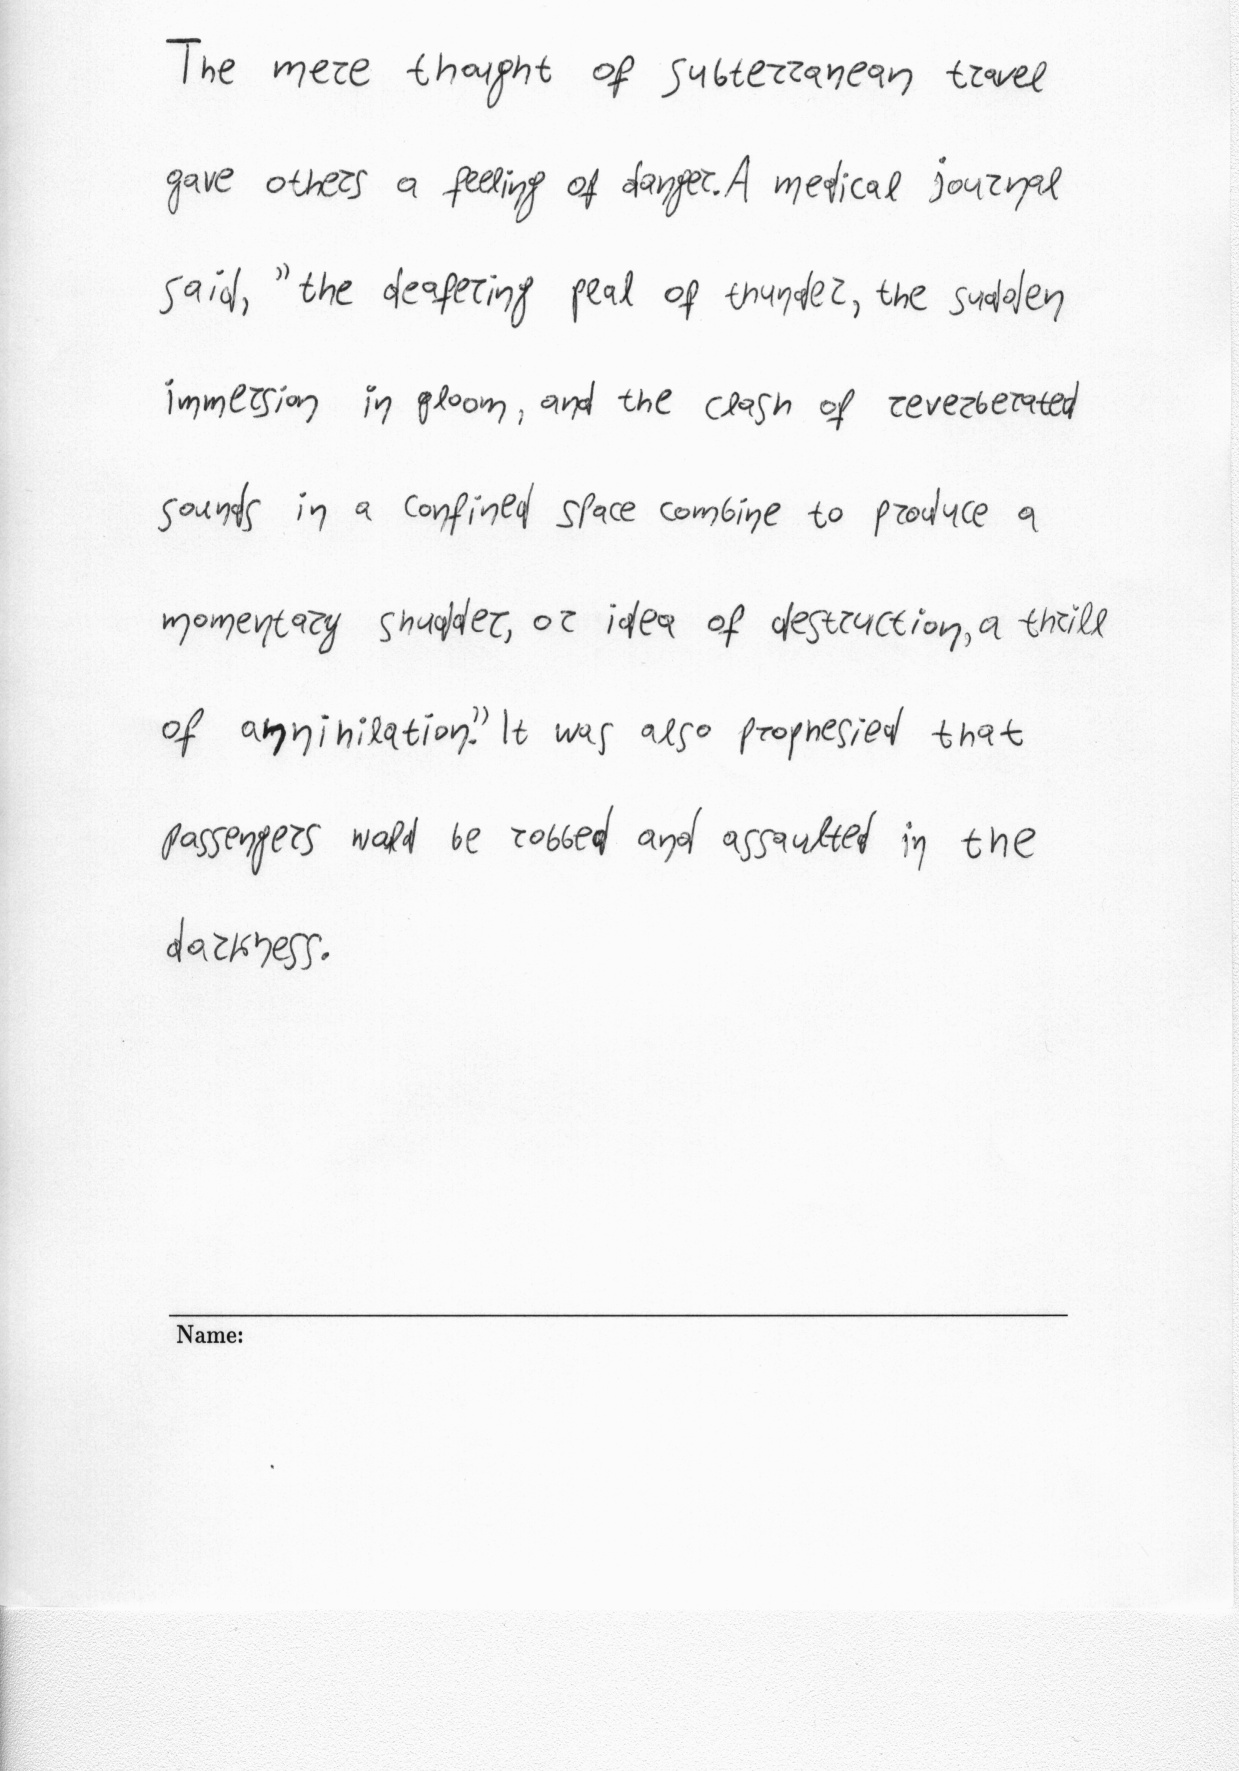 The mere thought of subterranean travel
gave others a feeling of danger. A medical journal
said, "the deafering peal of thunder, the sudden
immersion in gloom, and the clash of reverberated
sounds in a confined space combine to produce a
momentary shudder, or idea of destruction, a thrill
of annihilation." It was also prophesied that
passengers would be robbed and assaulted in the
darkness.
Name: